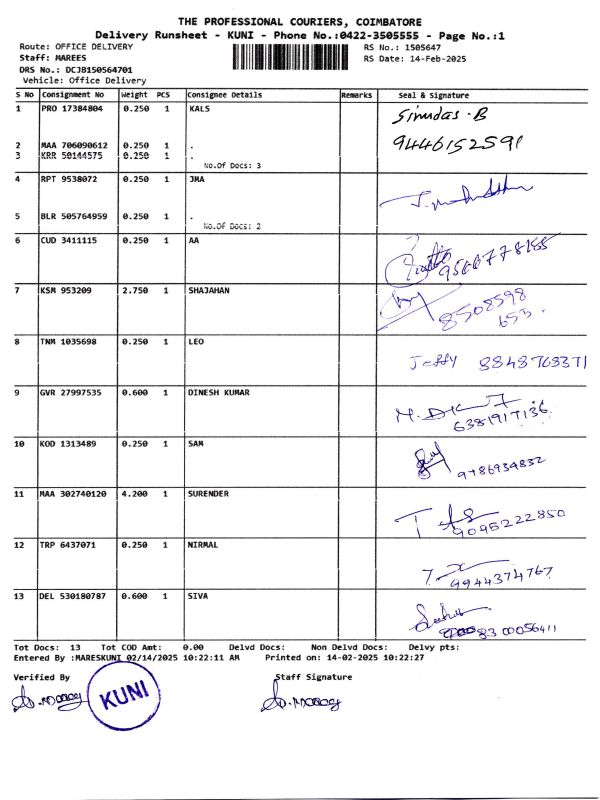 THE PROFESSIONAL COURIERS, COIMBATORE
Delivery Runsheet - KUNI - Phone No.:0422-3505555 - Page No.:1
Route: OFFICE DELIVERY RS No.: 1505647
Staff: MAREES RS Date: 14-Feb-2025
DRS No.: DCJB150564701
Vehicle: Office Delivery
S No Consignment No Weight PCS Consignee Details Remarks Seal & Signature
1 PRO 17384804 0.250 1 KALS
9446152591
2 MAA 706090612 0.250 1 .
3 KRR 50144575 0.250 1 .
No.Of Docs: 3
4 RPT 9538072 0.250 1 JMA
5 BLR 505764959 0.250 1 .
No.Of Docs: 2
6 CUD 3411115 0.250 1 AA
7 KSM 953209 2.750 1 SHAJAHAN
8508598
653.
8 TNM 1035698 0.250 1 LEO
Jeffy 8848763371
9 GVR 27997535 0.600 1 DINESH KUMAR
6381917136
10 KOD 1313489 0.250 1 SAM
9786934832
11 MAA 302740120 4.200 1 SURENDER
9095222850
12 TRP 6437071 0.250 1 NIRMAL
9944374767
13 DEL 530180787 0.600 1 SIVA
Tot Docs: 13 Tot COD Amt: 0.00 Delvd Docs: Non Delvd Docs: Delvy pts:
Entered By :MARESKUNI 02/14/2025 10:22:11 AM Printed on: 14-02-2025 10:22:27
Verified By Staff Signature
KUNI